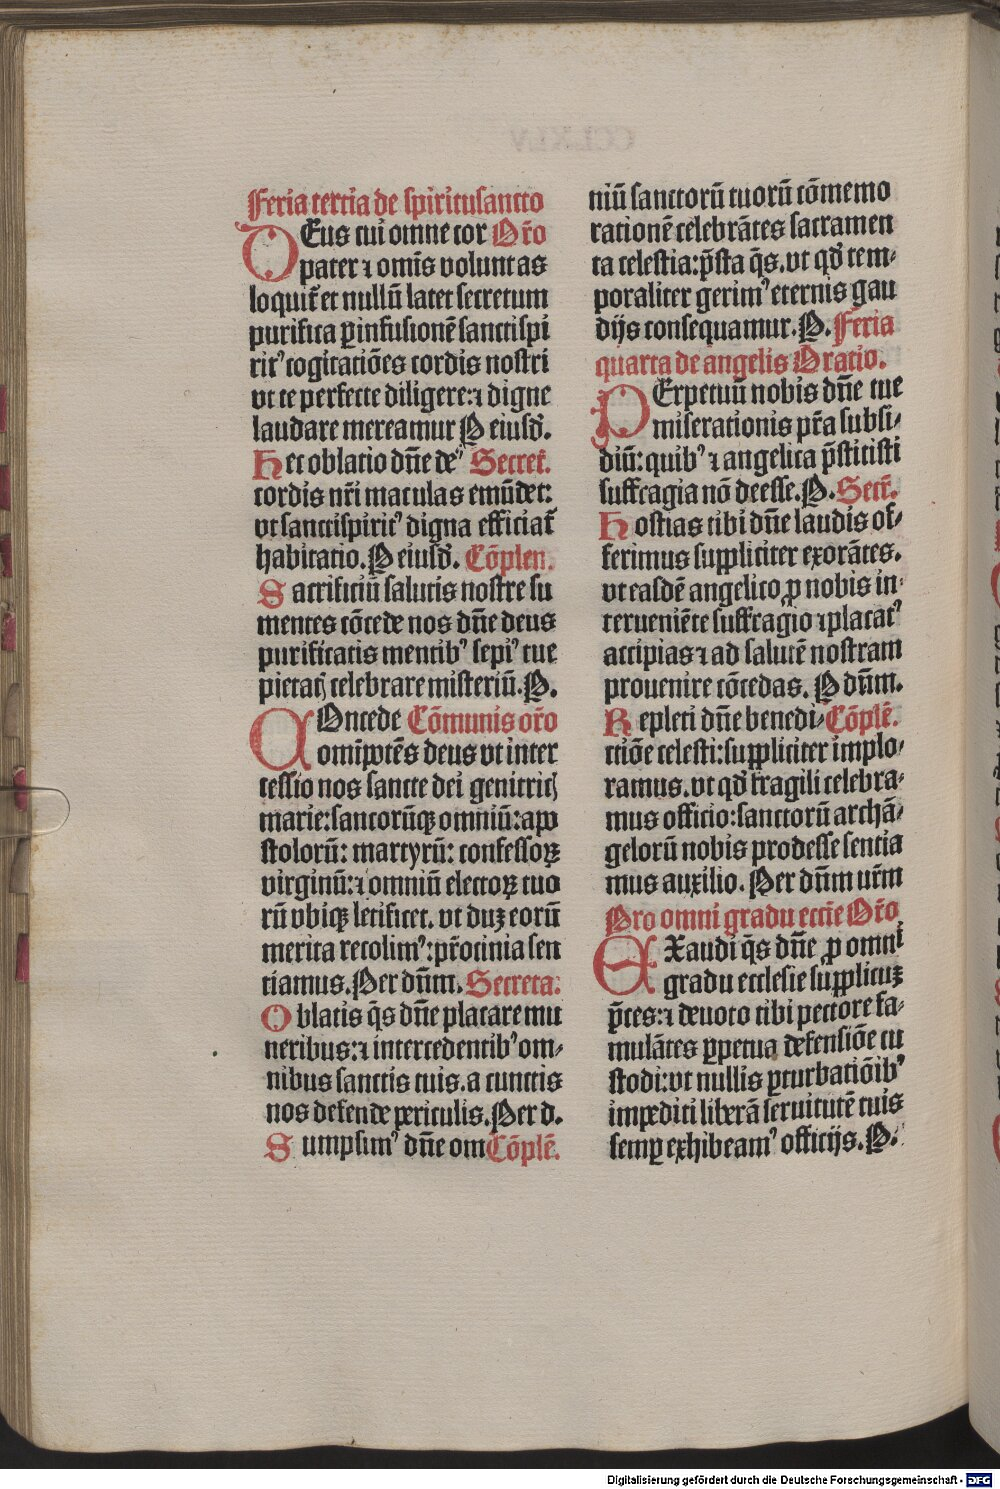 Feria tertia de spiritusancto
DEus cui omne cor Or̄o
pater ⁊ omīs voluntas
loquit᷑ et nullū latet secretum
purifica ꝑ infusionē sanctispi
rit᾽ cogitatiōes cordis nostri
vt te perfecte diligere:⁊ digne
laudare mereamur P eiusd̄.
Hec oblatio dn̄e de᾽ Secret̄.
cordis nr̄i maculas emūdet:
vt sanctispirit᾽ digna efficiat᷑
habitatio. P eiusd̄. Cōplen.
Sacrificiū salutis nostre su
mentes cōcede nos dn̄e deus
purificatis mentib᾽ sepi᾽ tue
pietatꝭ celebrare misteriū. P.
COncede Cōmunis or̄o
omīpotēs deus vt inter
cessio nos sancte dei genitricꝭ
marie: sancorūqꝫ omniū: apo
stolorū: martyrū: confessoꝝ
virginū:⁊ omniū electoꝝ tuo
rū vbiqꝫ letificet. vt duꝫ eorū
merita recolim᾽: pr̄ocinia sen
tiamus. Per dn̄m. Secreta:
Oblatis q̄s dn̄e placare mu
neribus:⁊ intercedentib᾽ om⸗
nibus sanctis tuis. a cunctis
nos defende periculis. Per d.
Sumpsim᾽ dn̄e om Cōplē.
niū sanctorū tuorū cōmemo
rationē celebrātes sacramen
ta celestia: p̄sta q̄s. vt qd̄ tem⸗
poraliter gerim᾽ eternis gau
dijs consequamur. P. Feria
quarta de angelis Oratio.
PErpetuū nobis dn̄e tue
miserationis pr̄a subsi⸗
diū: quib᾽ ⁊ angelica p̄stitisti
suffragia nō deesse. P. Secr̄.
Hostias tibi dn̄e laudis of⸗
ferimus suppliciter exorātes.
vt easdē angelico ꝓ nobis in⸗
terueniēte suffragio ⁊ placat᾽
accipias ⁊ ad salutē nostram
prouenire cōcedas. P dn̄m.
Repleti dn̄e benedi⸗ Cōplē.
ctiōe celesti: suppliciter implo⸗
ramus. vt qd̄ fragili celebra⸗
mus officio: sanctorū archā⸗
gelorū nobis prodesse sentia
mus auxilio. Per dn̄m nr̄m
Pro omni gradu eccīe Or̄o
EXaudi q̄s dn̄e ꝓ omni
gradu ecclesie supplicuꝫ
p̄ces:⁊ deuoto tibi pectore fa⸗
mulātes ꝑpetua defensiōe cu
stodi: vt nullis ꝑturbatiōib᾽
impediti liberā seruitutē tuis
semꝑ exhibeam᾽ officijs. P.
Digitalisierung gefördert durch die Deutsche Forschungsgemeinschaft - DFG